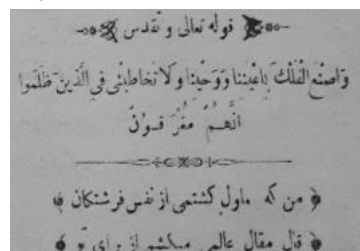 قوله تعالی و تقدس
وَاصْنَعِ الْفُلْكَ بِاَعْیُنِنا وَوَحْیِنا وَلا تُخاطِبْنی فِی الَّذینَ ظَلَمُوا
اِنَّهُمْ مُغْرَقُونَ
من که ملول کشتمی از نفس فرشتکان
قال مقال عالمی میکشم از برای تو